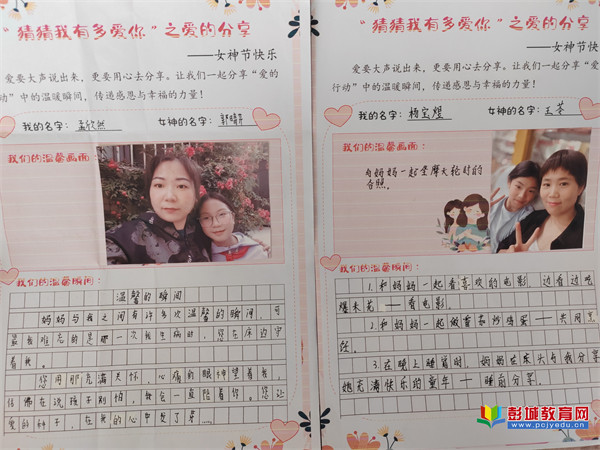 “猜猜我有多爱你”之爱的分享
——女神节快乐
爱要大声说出来,更要用心去分享。让我们一起分享“爱的
动”中的温暖瞬间,传递感恩与幸福的力量!
我的名字:孟欣然 女神的名字:郭晴
我们的温馨画面:
我们的温馨瞬间:
温馨的瞬间
妈妈与我之间有许多次温馨的瞬间,可
最我难忘的是那一次我生病时,您在床边守
着我。
您用那充满关怀,心痛的眼神望着我,
仿佛在说孩子别怕,我会一直陪着你。您让
爱的种子,在我的心中发了芽……
“猜猜我有多爱你”之爱的分享
——女神节快
爱要大声说出来,更要用心去分享。让我们一起分享“爱
行动”中的温暖瞬间,传递感恩与幸福的力量!
我的名字:杨宝煜 女神的名字:王苓
我们的温馨画面:
与妈妈一起坐摩天轮时的
合照。
我们的温馨瞬间:
1.和妈妈一起看喜欢的电影,边看边吃
爆米花——看电影。
2.和妈妈一起做番茄炒鸡蛋——共同烹
饪。
3.在晚上睡前时,妈妈在床头与我分享
她充满快乐的童年——睡前分享。
彭城教育网
www.pcjyedu.cn